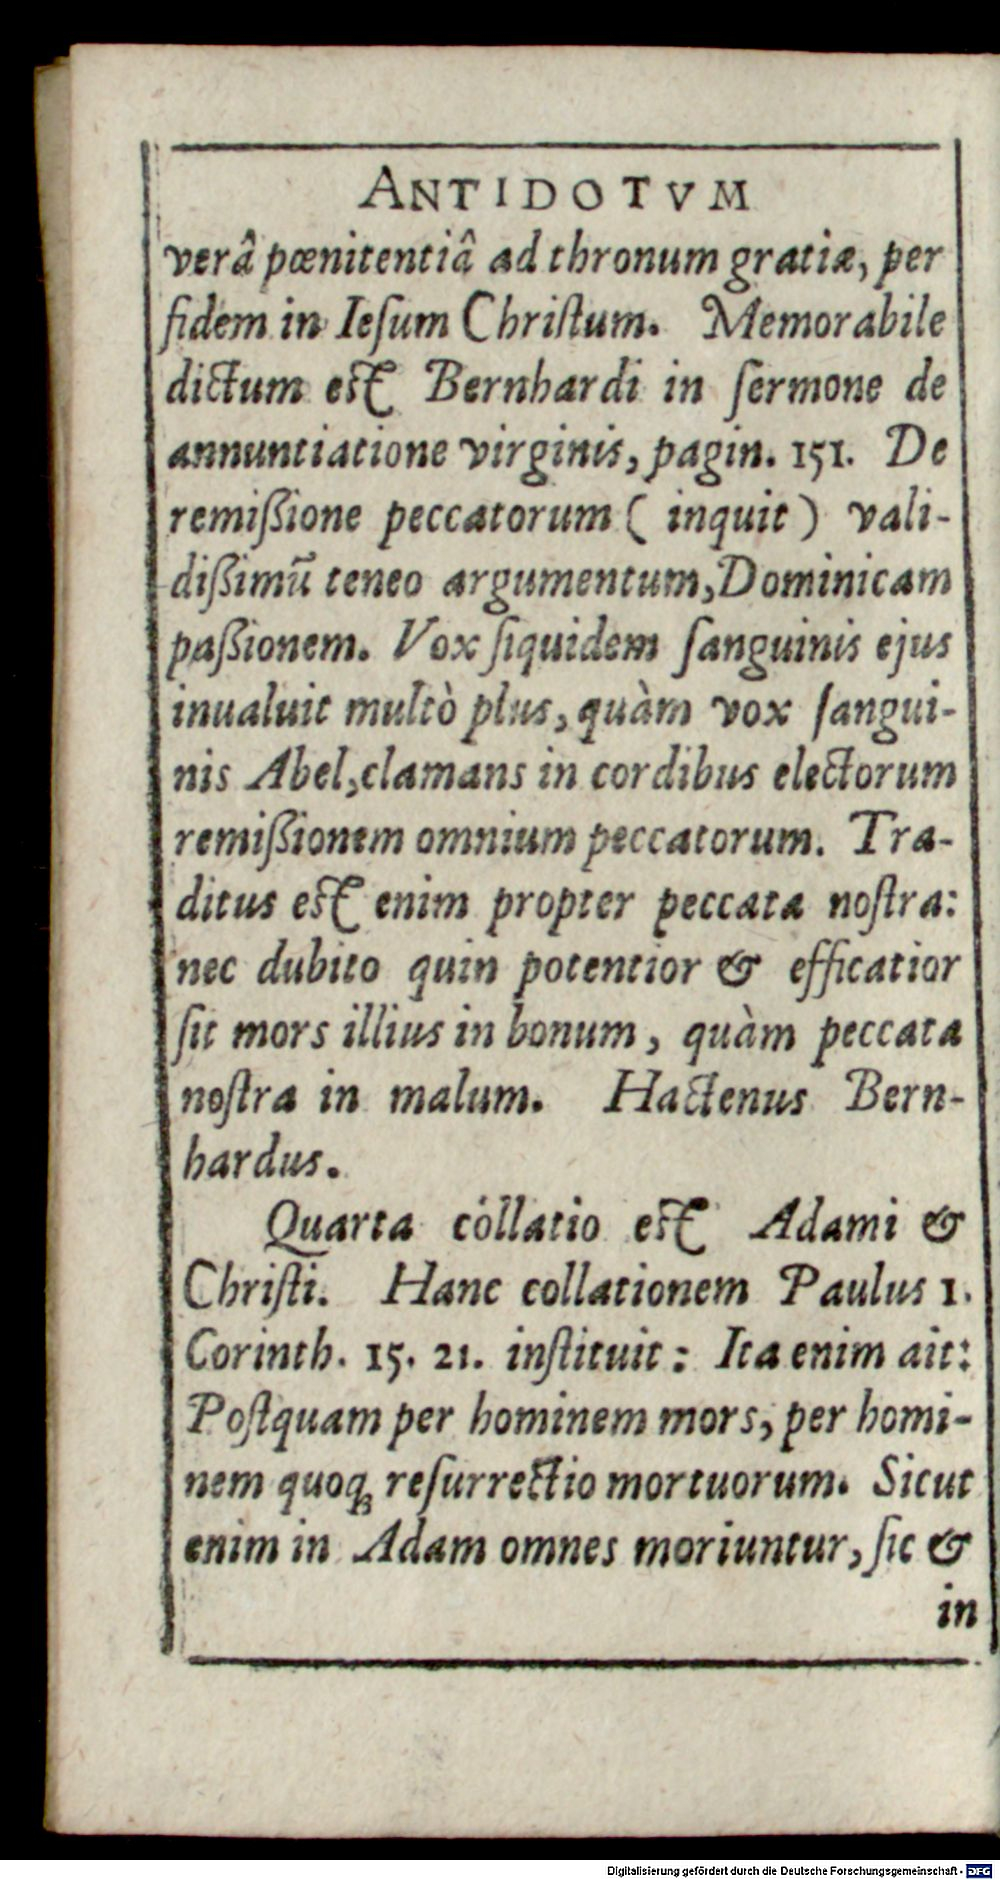 ANTIDOTVM
verâ pœnitentiâ ad thronum gratiæ, per
fidem in Iesum Christum. Memorabile
dictum est Bernhardi in sermone de
annuntiatione virginis, pagin. 151. De
remißione peccatorum ( inquit ) vali-
dißimū teneo argumentum, Dominicam
paßionem. Vox siquidem sanguinis ejus
inualuit multò plus, quàm vox sangui-
nis Abel, clamans in cordibus electorum
remißionem omnium peccatorum. Tra-
ditus est enim propter peccata nostra:
nec dubito quin potentior & efficatior
sit mors illius in bonum, quàm peccata
nostra in malum. Hactenus Bern-
hardus.
Quarta collatio est Adami &
Christi. Hanc collationem Paulus 1.
Corinth. 15. 21. instituit: Ita enim ait:
Postquam per hominem mors, per homi-
nem quoqꝫ resurrectio mortuorum. Sicut
enim in Adam omnes moriuntur, sic &
in
Digitalisierung gefördert durch die Deutsche Forschungsgemeinschaft - DFG